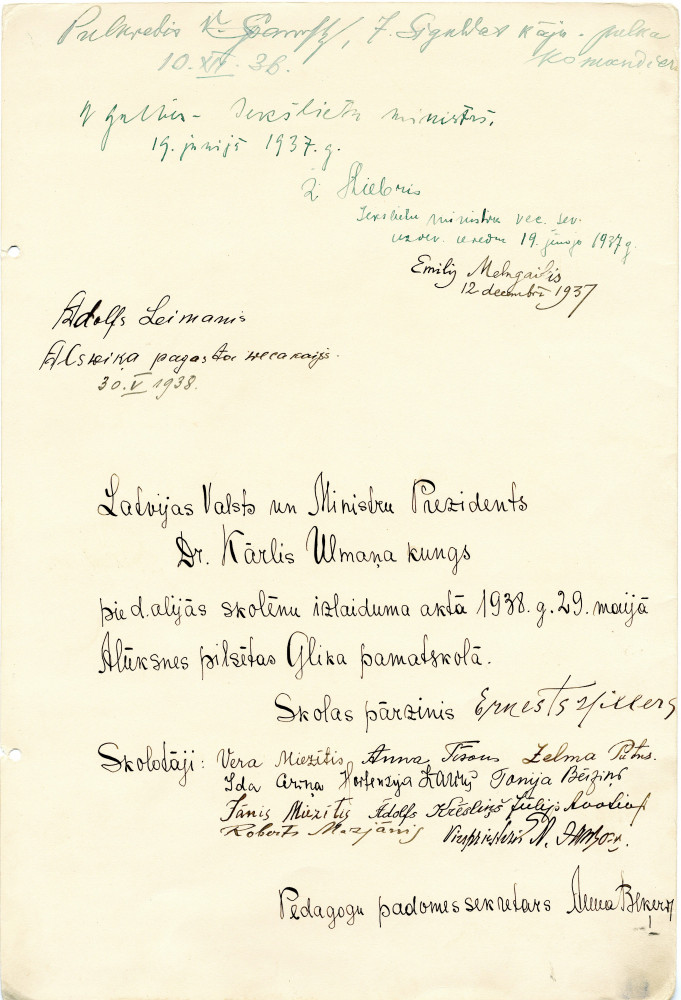 Pulkvedis K. 7. Siguldas kāju. pulka
Komandieris
10. XII. 36.
V Gulbis - Iekšlietu ministrs.
19. jūnijā 1937. g.
Ž Stiebris
Iekšlietu ministru vec. sev.
uzdev. ierēdn 19. jūnijā 1937 g.
Emilis Melngailis
12 decembrī 1937
Adolfs Leimanis
Alsviķa pagasta vecākais.
30. V 1938.
Latvijas Valsts un Ministru Prezidents
Dr. Kārlis Ulmaņa kungs
piedalijās skolēnu izlaiduma aktā 1938. g. 29. maijā
Alūksnes pilsētas Glika pamatskolā.
Skolas pārzinis Ernests
Skolotāji: Vera Miezītis Anna Zelma
Ida Hortenzija Tonija Bērziņš
Jānis Miezītis Adolfs Krēsliņš Jūlijs
Roberts Mazjānis Virspriesteris
Pedagogu padomes sekretars Anna